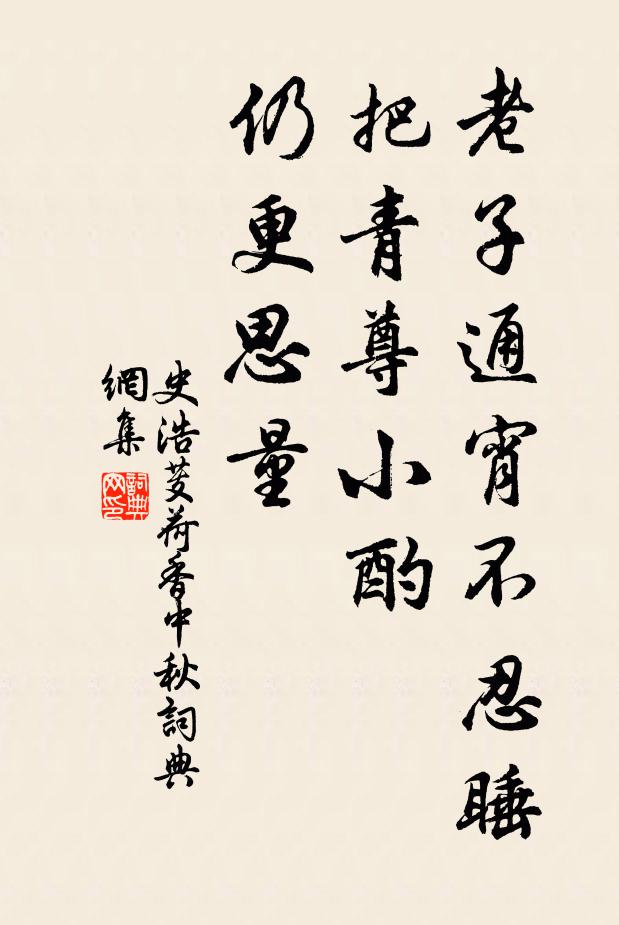 老子通宵不忍睡
把青尊小酌
仍更思量
史浩芰荷香中秋詞典
網集
詞典
网印